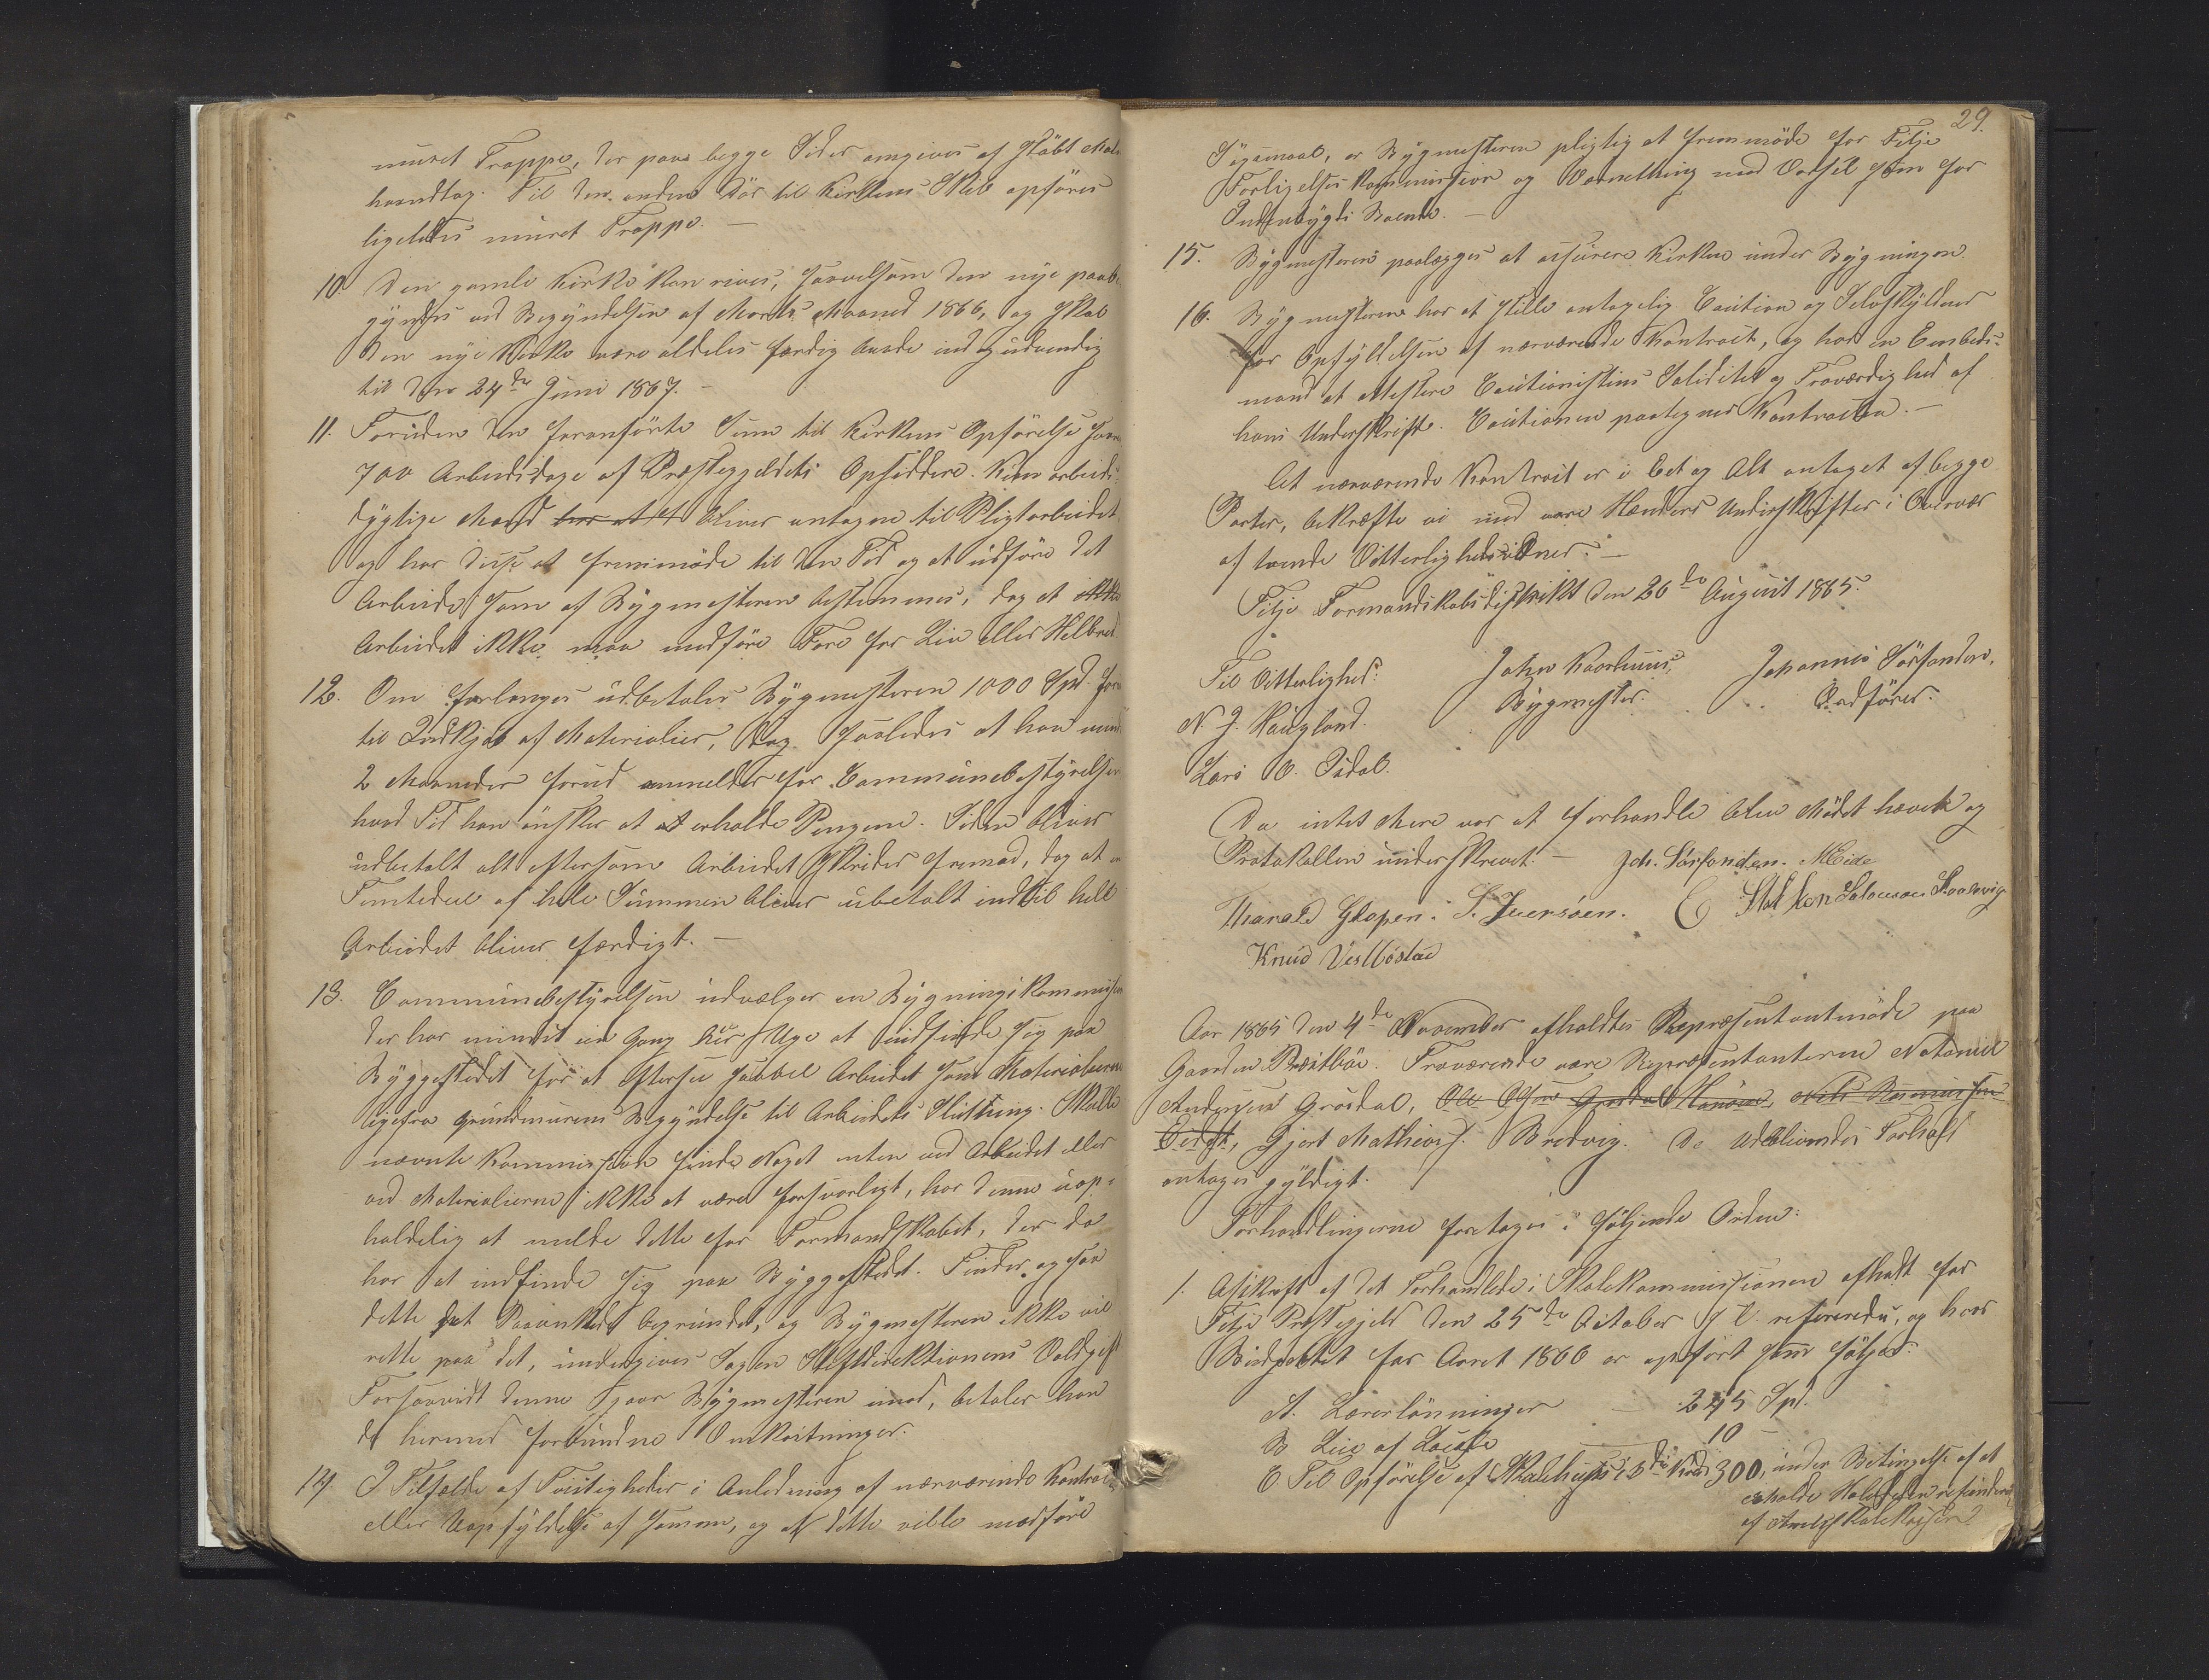 muret Trappe, der paa begge Sider omgives af støbt
haandtag. Til den anden Dør til Kirkens Skib opføres
ligeledes muret Trappe. —
10. Den gamle Kirke kan rives, saavelsom den nye paabe-
gyndes ved Begyndelsen af Marts Maaned 1866, og skal
den nye Kirke være aldeles færdig baade ind og udvendig
til den 24de Juni 1867. —
11. Foruden den foranførte Sum til Kirkens Opførelse
700 Arbeidsdage af Præstegjeldets Opsiddere. Kun arbeids-
dygtige Mænd bliver antagne til Pligtarbeidet
og har disse at fremmøde til den Tid og at udføre det
Arbeide, som af Bygmesteren bestemmes, dog at ikke
Arbeidet ikke maa medføre Fare for Liv eller Helbred.
12. Om forlanges udbetales Bygmesteren 1000 Spd.
til Indkjøb af Materialier, dog saaledes at han
2 Maaneder forud anmelder for Communebestyrelsen
hvad Tid han ønsker at erholde Pengene. Siden bliver
udbetalt alt eftersom Arbeidet skrider fremad, dog at en
Femtedeel af hele Summen bliver ubetalt indtil hele
Arbeidet bliver færdigt. —
13. Communebestyrelsen udvælger en Bygningskommission
der har mindst een Gang hver Uge at indfinde sig paa
Byggestedet for at eftersee saavel Arbeidet som Materialierne
ligefra Grundmurens Begyndelse til Arbeidets Slutning. Skulle
nævnte Kommission finde Noget enten ved Arbeidet eller
ved Materialierne ikke at være forsvarligt, har denne uop-
holdelig at melde dette for Formandskabet, der da
har at indfinde sig paa Byggestedet. Finder ogsaa
dette det Paaankede begrundet, og Bygmesteren ikke vil
rette paa det, undergives Sagen Stiftsdirektionens Voldgift
Forsaavidt denne gaar Bygmesteren imod, betaler han
de hermed forbundne Omkostninger.
14. I Tilfælde af Tvistigheder i Anledning af nærværende Kontract
eller Uopfyldelse af samme, og at dette ville medføre
29.
Søgsmaal, er Bygmesteren pligtig at fremmøde for Fitje
Forligelseskommission og Værnething med Varsel som for
Indenbygds Boende. —
15. Bygmesteren paalægges at assurere Kirken under Bygningen.
16. Bygmesteren har at stille antagelig Caution og Selvskyldner
for Opfyldelsen af nærværende Kontract, og har en Embeds-
mand at attestere Cautionistens Soliditet og Troværdighed af
hans Underskrift. Cautionen paategnes Kontracten. —
At nærværende Kontract er i Eet og Alt antaget af begge
Parter, bekræfte vi med vore Hænders Underskrifter i Overvær
af tvende Vitterlighedsvidner. —
Fitje Formandskabsdistrikt den 26de August 1865.
Til Vitterlighed: John Kaarhuus, Johannes Sørfonden,
N J. Haugland. Bygmester. Ordfører.
Lars O. Isdal.
Da intet Mere var at forhandle blev Mødet hævet og
Protokollen underskrevet. — Joh. Sørfonden. MEide
Harald Glopen. S. Iversøen. Salomon
Knud Vestbøstad
Aar 1865 den 4de November afholdtes Repræsentantmøde paa
Gaarden Præstbøe. Fraværende vare Repræsentanterne Nataniel
Andersen Grøsdal, Ole Olsen Hanøen, Nils Rasmussen
Gjert Mathias. Bredvig. De Udeblivendes Forfald
antages gyldigt.
Forhandlingerne foretoges i følgende Orden:
1. Afskrift af det Forhandlede i Skolekommissionen afholdt for
Fitje Præstegjeld den 25de October d. A. refereredes, og hvor
Budgettet for Aaret 1866 er opført som følger:
A. Lærerlønninger — 245 Spd.
B Leie af Locale 10 —
C. Til Opførelse af Skolehuus i 3die Kreds 300, under Betingelse af at
erholde Halvdelen refunderet
af Amtsskolekassen.